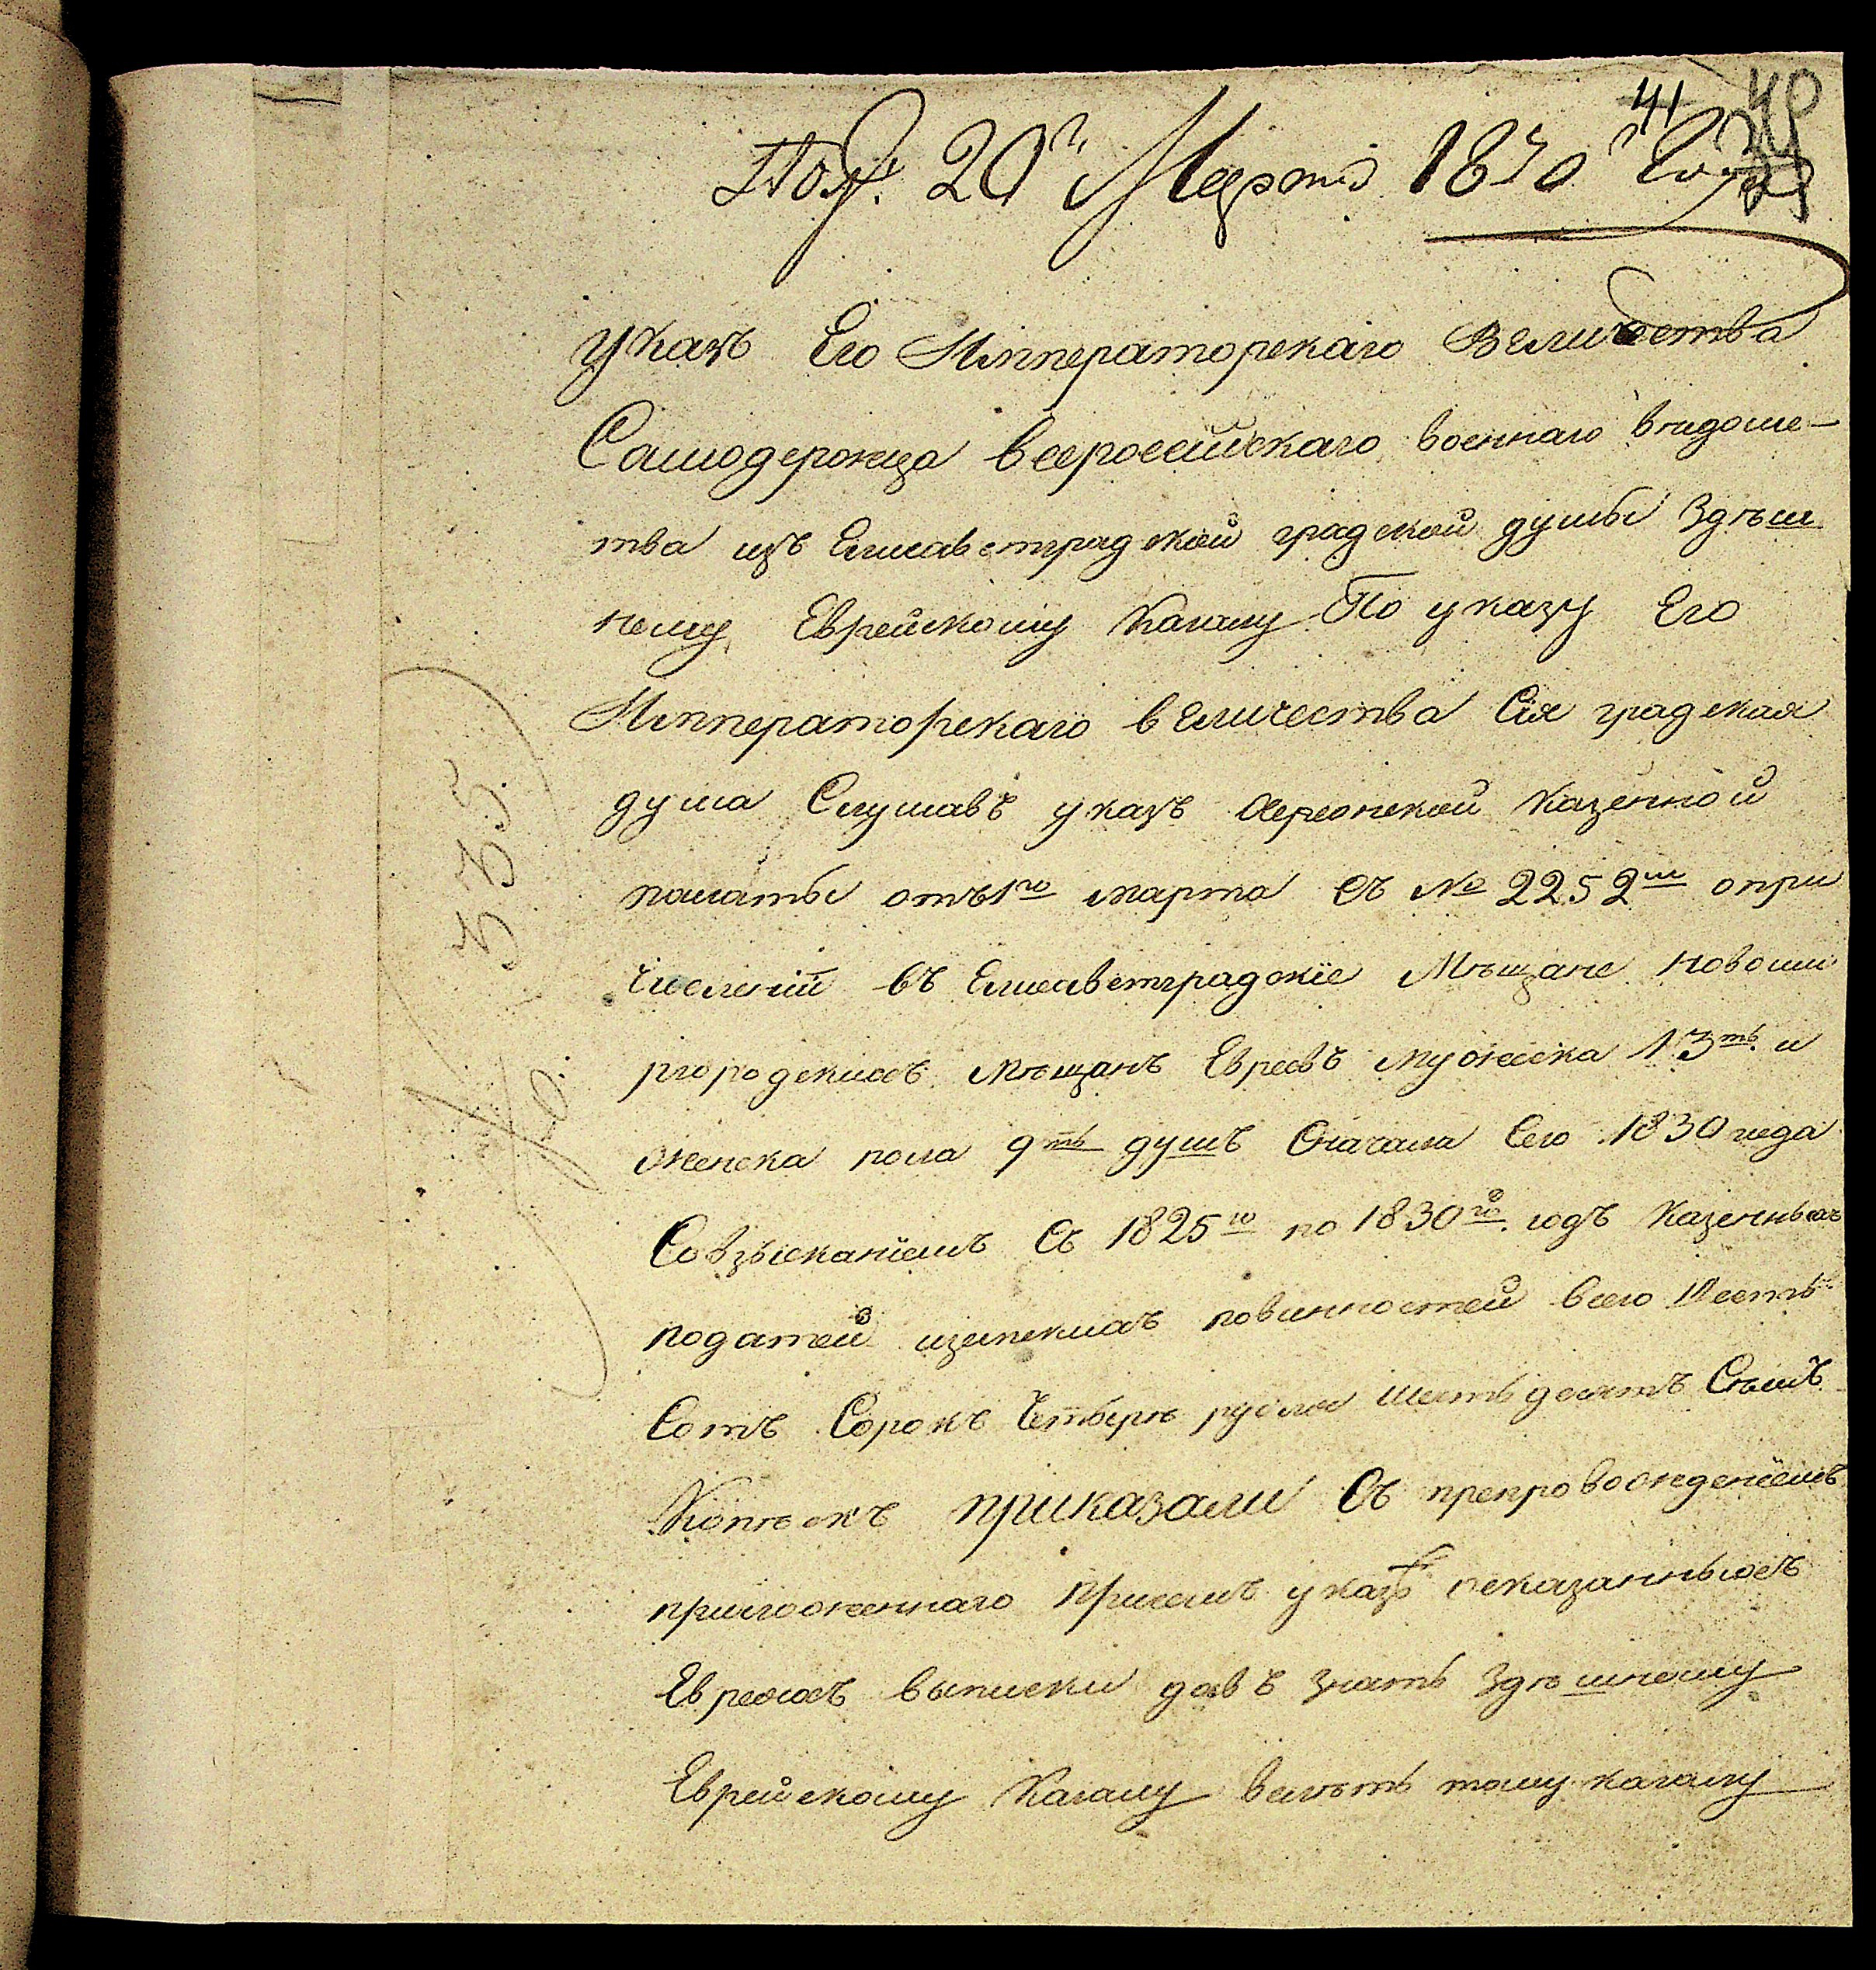 41 40
Пол: 20г Марта 1830г Года
Указъ Его Императорскаго Величества
Самодержца Всероссийскаго военнаго вѣдомс-
тва изъ Елисаветградской градской думы Здѣш
нему Еврейскому Кагалу По указу Его
Императорскаго величества Сія градская
дума Слушавъ указъ Херсонской Казенной
палаты отъ 1го марта съ № 2252м опри
числений въ Елисаветградскіе Мѣщане новоми
ргородскихъ мѣщанъ Евреевъ мужеска 13ть и
женска пола 9ть душъ Сначала Сего 1830 года
Совзысканіемъ Съ 1825го по 1830го годъ Казенныхъ
податей иземскихъ повинностей всего Шесть
Сотъ Сорокъ Четыре рубля шестьдесятъ Сѣмъ
Копѣекъ приказали Съ препровожденіемъ
приложеннаго Присемъ указѣ показанныхъ
Евреяхъ выписки давъ знать Здѣшнему
Еврейскому Кагалу велѣть тому кагалу
335.